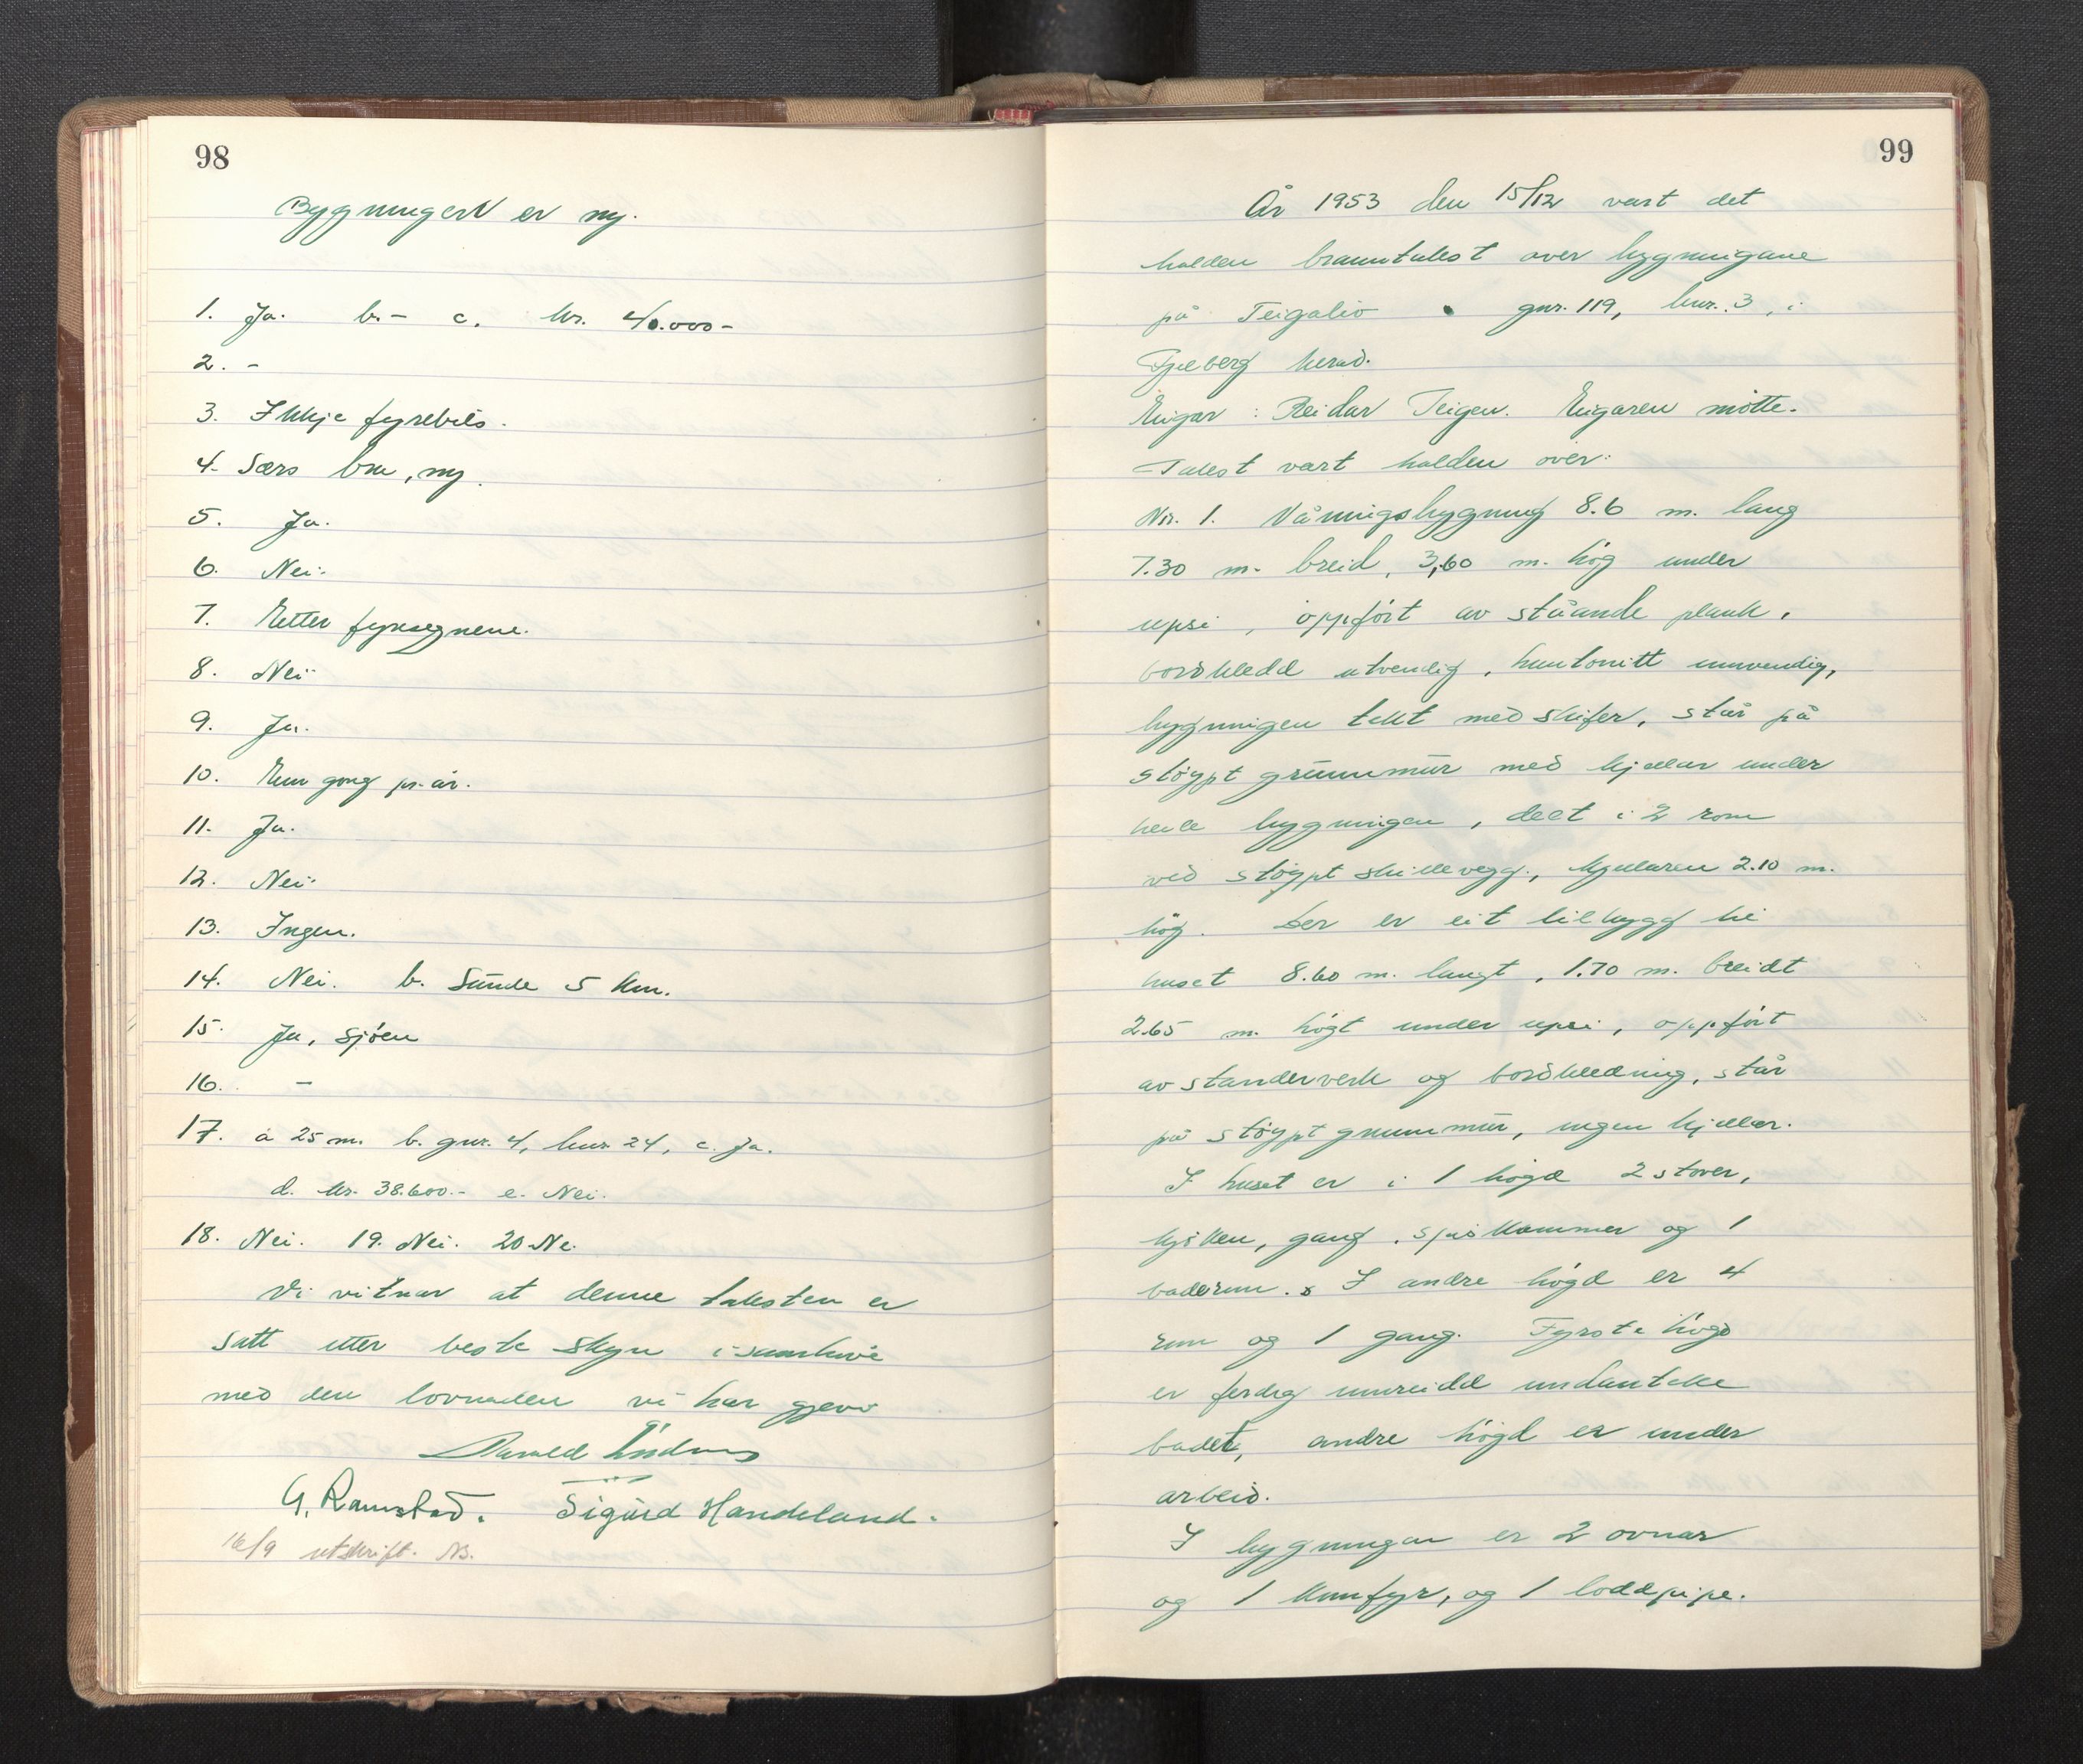 98
Bygningen er ny.
1. Ja. b. - c. kr. 40.000 -
2. -
3. Ikkje fyrebils.
4. Særs bra, ny.
5. Ja.
6. Nei.
7. Etter fyresegnene.
8. Nei.
9. Ja.
10. Ein gong pr. år.
11. Ja.
12. Nei.
13. Ingen.
14. Nei. b. Sunde 5 km.
15. Ja, sjøen
16. -
17. a 25 m. b. gnr. 4, bnr. 24, c. Ja.
d. kr. 38.600.- e. Nei.
18. Nei. 19. Nei. 20 Nei.
Vi vitnar at denne taksten er
sett etter beste skyn i samhøve
med den lovnaden vi har gjeve
Harald
G. Ramstad. Sigurd Handeland.
16/9 utskrift.
99
År 1953 den 15/12 vart det
halden branntakst over bygningane
på Teigaliò gnr. 119, bnr. 3, i
Fjelberg herad.
Eigar: Reidar Teigen. Eigaren møtte.
Takst vart halden over:
Nr. 1. Våningsbygning 8.6 m. lang
7.30 m. breid, 3,60 m. høg under
upsi, oppført av ståande plank,
bordkledd utvendig, huntonitt innvendig,
bygningen tekt med skifer, står på
støypt grunnmur med kjellar under
heile bygningen, delt i 2 rom
ved støypt skillevegg, kjellaren 2.10 m.
høg. Der er eit tilbygg til
huset 8.60 m. langt, 1.70 m. breidt
2.65 m. høgt under upsi, oppført
av standerverk og bordkledning, står
på støypt grunnmur, ingen kjeller.
I huset er i 1 høgd 2 stover,
kjøken, gang, spiskammer og 1
baderum. I andre høgd er 4
rum og 1 gang. Fyrste høgd
er ferdig innreidd undanteke
badet, andre høgd er under
arbeid.
I bygningen er 2 ovnar
og 1 komfyr, og 1 loddpipe.